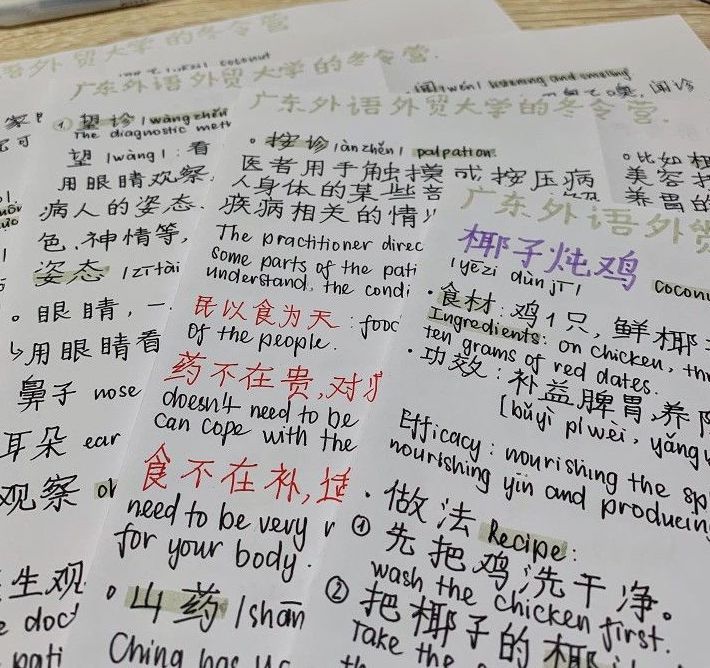 外语外贸大学的冬令营
coconut
广东外语外贸大学的冬令营.
① 望诊 |wàngzhěn
The diagnostic meth
望 |wàng| : 看
用眼睛观察
病人的姿态.
色、神情等,
姿态 |zītài
。眼睛, 一
↳用眼睛看
鼻子 nose
耳朵 ear
观察 ob
生观
e doct
pati
|wén| listening and smelling
闻诊
广东外语外贸大学的冬令营.
• 按诊 |ànzhěn| palpation.
医者用手触摸或按压病
人身体的某些部
疾病相关的情
The practitioner direc
some parts of the pati
understand, the condi
民以食为天 : food
of the people.
药不在贵,对
doesn't need to be
can cope with the
食不在补,适
need to be very
for your body.
• 山药 |shān
China has
。比如
美容
养胃的
广东外语外贸
椰子炖鸡 coconu
|yēzi dùn jī|
• 食材 : 鸡1只, 鲜椰
Ingredients: on chicken, thr
ten grams of red dates.
• 功效 : 补益脾胃,养阴
[bǔyì píwèi, yǎngy
Efficacy: nourishing the sp
nourishing yin and producing
• 做法 Recipe:
① 先把鸡洗干净。
wash the chicken first.
② 把椰子的椰
Take the